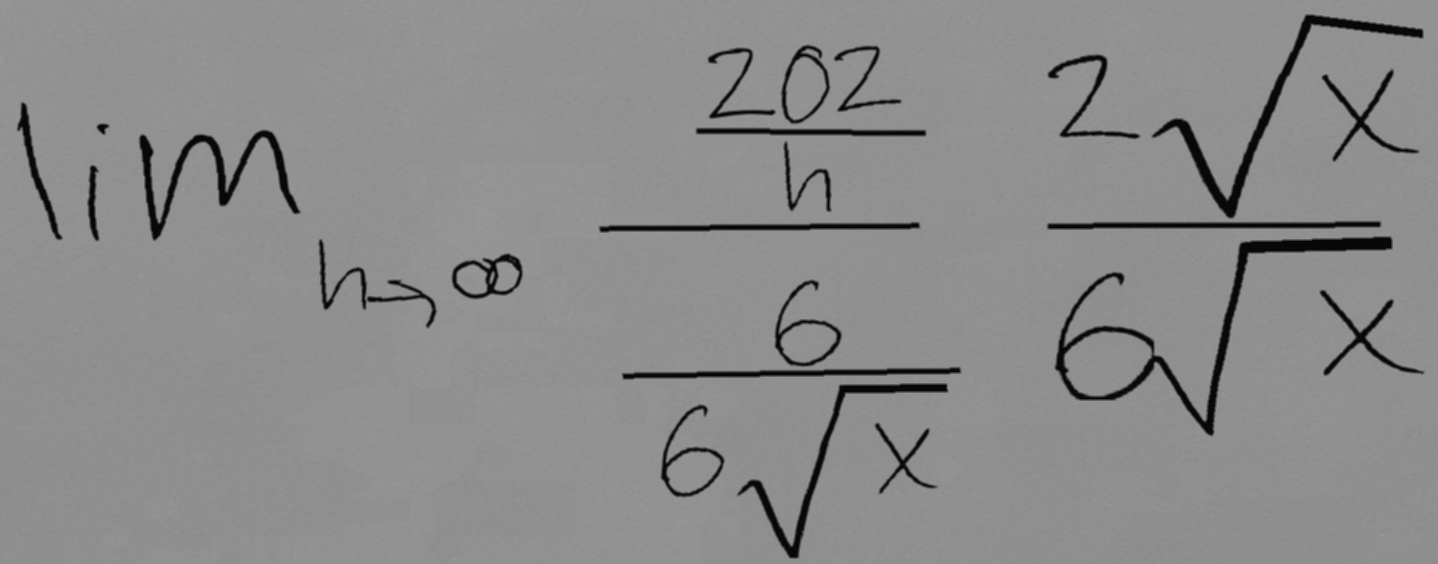 lim h→∞ 202/h / 6/6√x 2√x/6√x